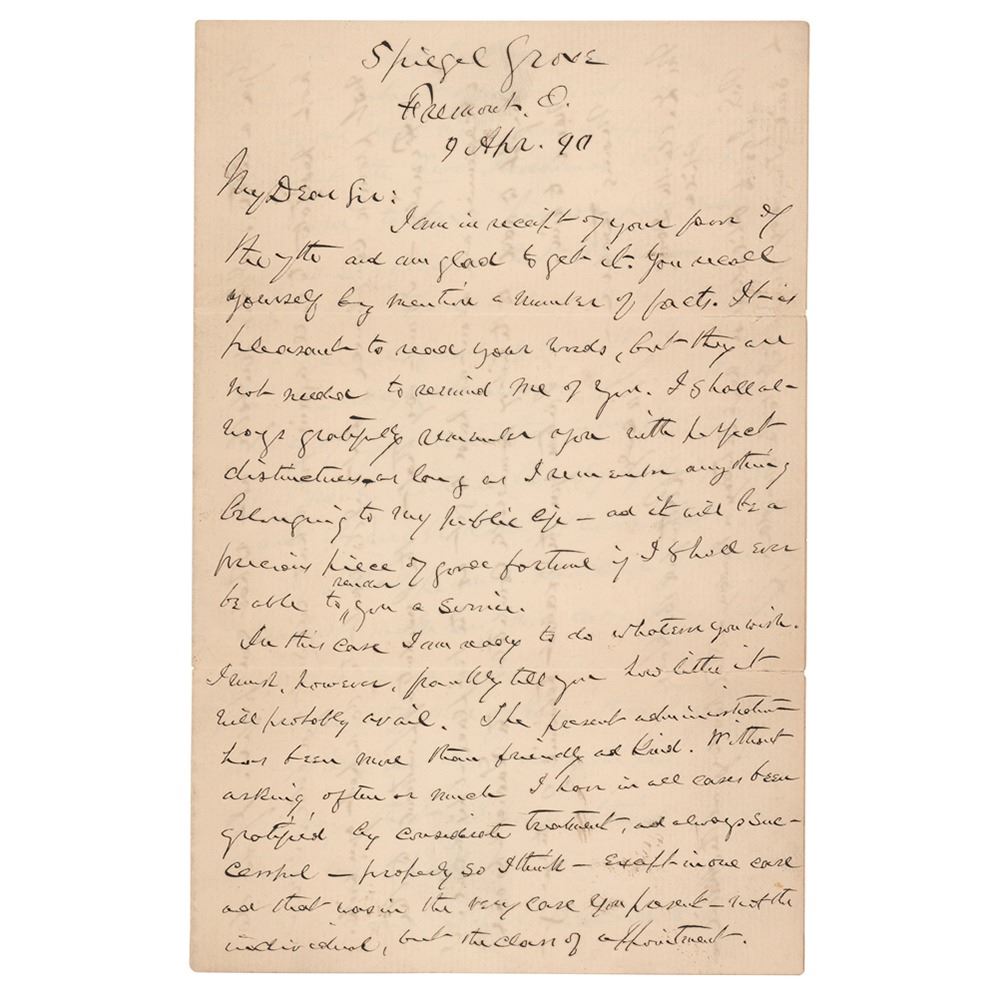 Spiegel Grove
Fremont. O.
9 Apr. 90
My Dear Sir:
I am in receipt of your favor of
the 7th and am glad to get it. You recall
yourself by mention a number of facts. It is
pleasant to read your words, but they are
not needed to remind me of you. I shall al-
ways gratefully remember you with perfect
distinctness as long as I remember anything
belonging to my public life – and it will be a
precious piece of good fortune if I shall ever
render
be able to you a service.
In this case I am ready to do whatever you wish.
I must, however, frankly tell you how little it
will probably avail. The present administration
has been more than friendly and kind. Without
asking often or much I have in all cases been
gratified by considerate treatment, and always suc-
cessful – properly so I think – except in one case
and that was in the very case you present – not the
individual, but the class of appointment.